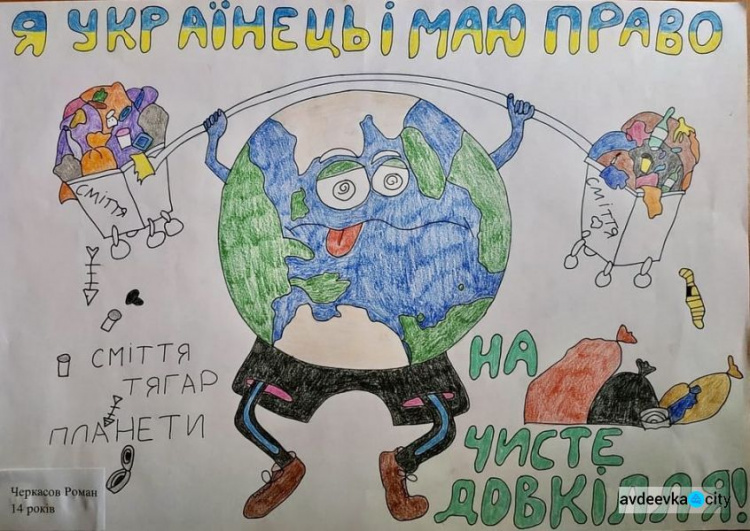 Я УКРАЇНЕЦЬ І МАЮ ПРАВО
СМІТТЯ
СМІТТЯ
СМІТТЯ
ТЯГАР
ПЛАНЕТИ
НА
ЧИСТЕ
ДОВКІЛЛЯ!
Черкасов Роман
14 років
avdeevka city